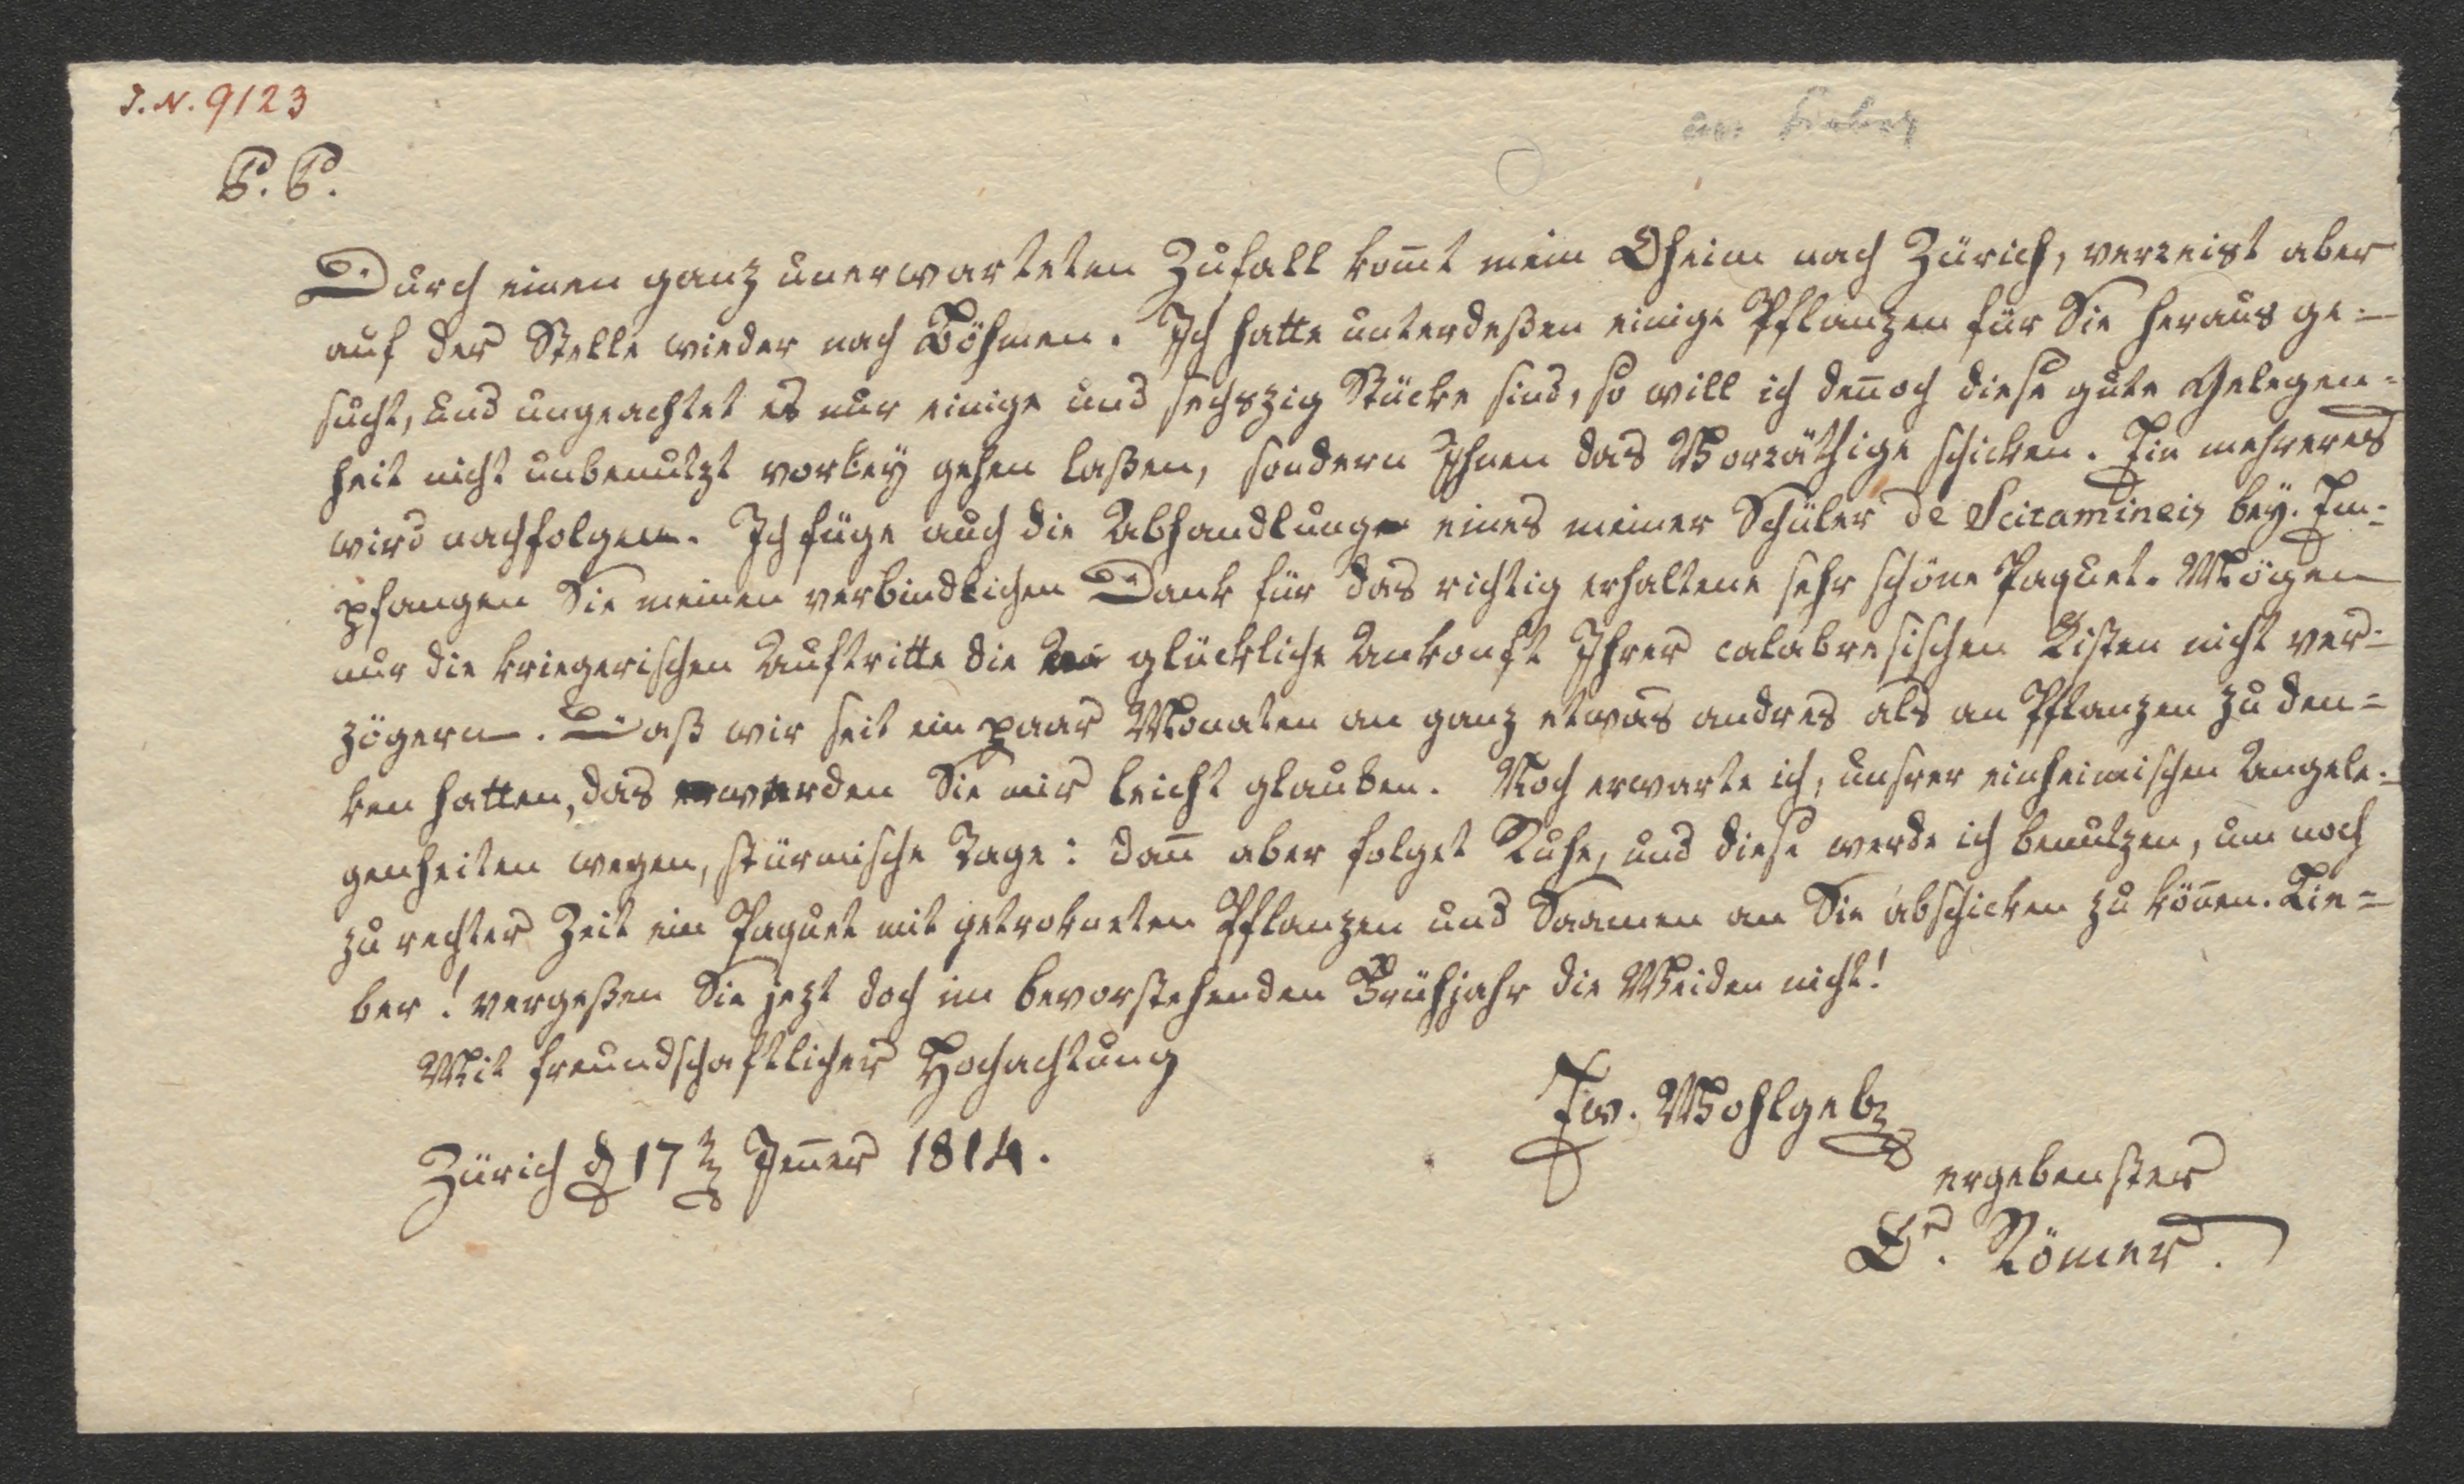 I.N. 9123
an Sieber
P. P.
Durch einen ganz unerwarteten Zufall kom̄t mein Oheim nach Zürich, verreist aber
auf der Stelle wieder nach Böhmen. Ich hatte unterdeßen einige Pflanzen für Sie heraus ge-
sucht, und ungeachtet es nur einige und sechszig Stücke sind, so will ich den̄och diese gute Gelegen=
heit nicht unbenutzt vorbey gehen laßen, sondern Ihnen das Vorräthige schicken. Ein mehreres
wird nachfolgen. Ich füge auch die Abhandlung eines meiner Schüler de Scitamineis bey. Em-
pfangen Sie meinen verbindlichen Dank für das richtig erhaltene sehr schöne Paquet. Mögen
nur die kriegerischen Auftritte die glückliche Ankonft Ihrer calabresischen Kisten nicht ver-
zögern. Daß wir seit ein paar Monaten an ganz etwas andres als an Pflanzen zu den=
ken hatten, das werden Sie mir leicht glauben. Noch erwarte ich, unsrer einheimischen Angele-
genheiten wegen, stürmische Tage: dan̄ aber folget Ruhe, und diese werde ich benutzen, um noch
zu rechter Zeit ein Paquet mit getrokneten Pflanzen und Saamen an Sie abschicken zu kön̄en. Lie=
ber! vergeßen Sie jezt doch im bevorstehenden Frühjahr die Weiden nicht!
Mit freundschaftlicher Hochachtung
Ew. Wohlgeb
Zürich d 17 Jen̄er 1814.
ergebenster
Dr. Römer.